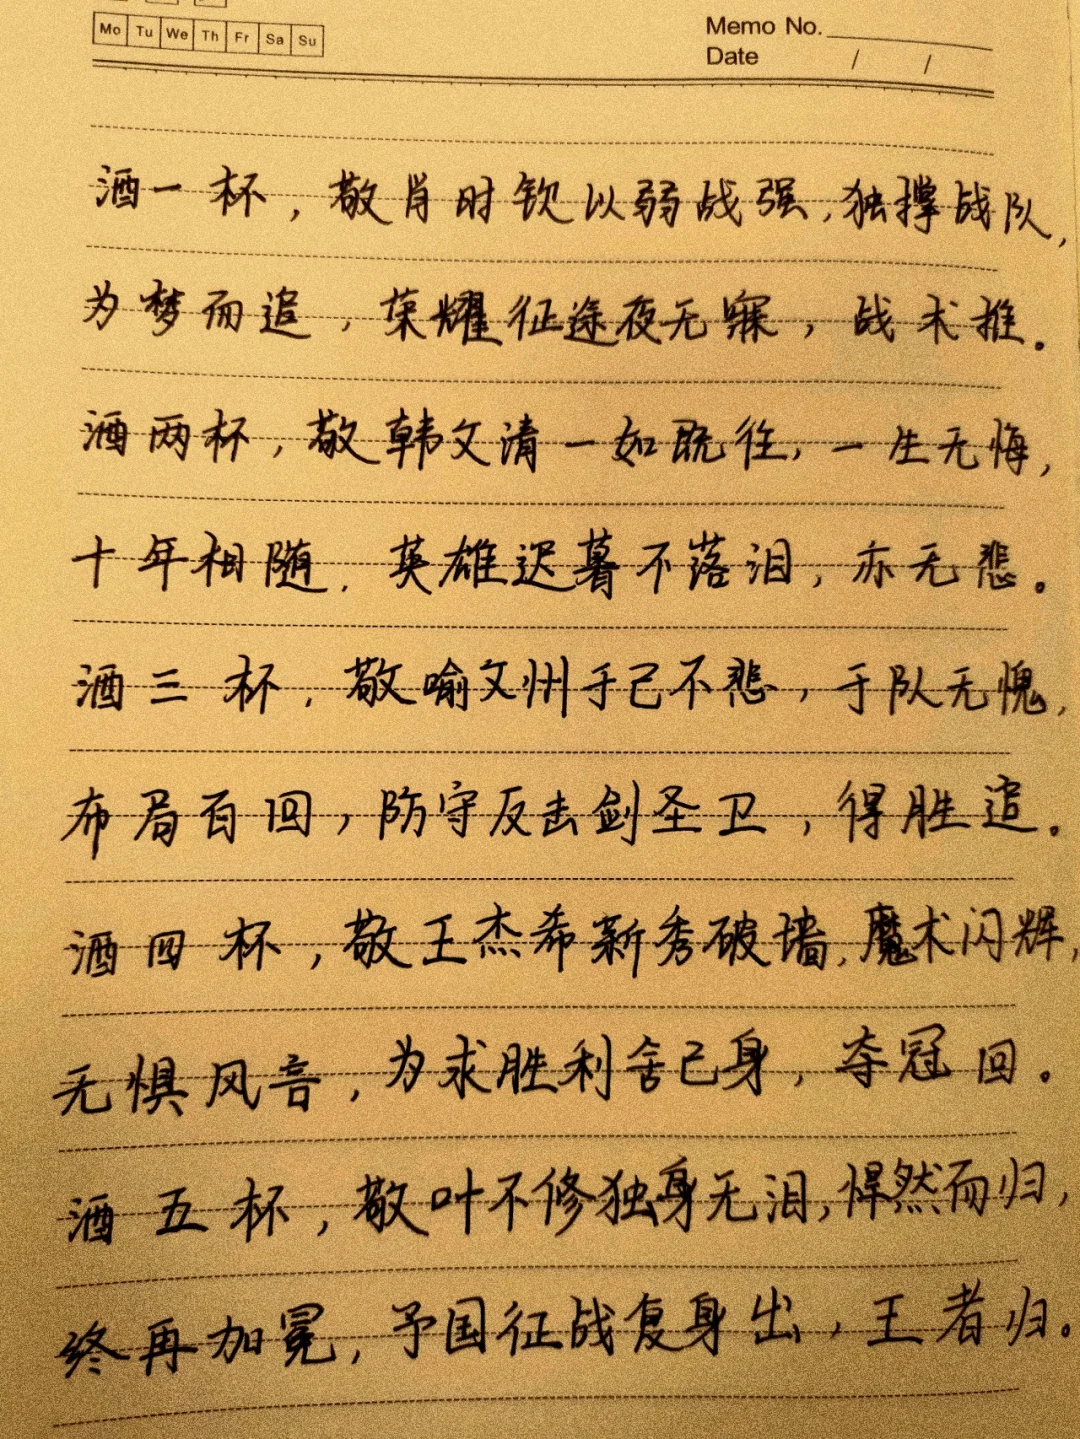 Mo Tu We Th Fr Sa Su
Memo No.
Date / /
酒一杯，敬肖时钦以弱战强，独撑战队，
为梦而追，荣耀征途夜无寐，战术推。
酒两杯，敬韩文清一如既往，一生无悔，
十年相随，英雄迟暮不落泪，亦无悲。
酒三杯，敬喻文州于己不悲，于队无愧，
布局百回，防守反击剑圣卫，得胜追。
酒四杯，敬王杰希新秀破墙，魔术闪辉，
无惧风言，为求胜利舍己身，夺冠回。
酒五杯，敬叶不修独身无泪，悍然而归，
终再加冕，予国征战复身出，王者归。